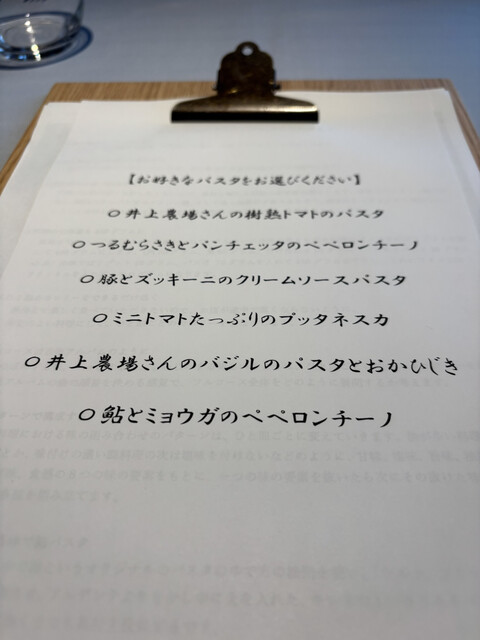 【お好きなパスタをお選びください】
○井上農場さんの樹熟トマトのパスタ
○つるむらさきとパンチェッタのペペロンチーノ
○豚とズッキーニのクリームソースパスタ
○ミニトマトたっぷりのプッタネスカ
○井上農場さんのバジルのパスタとおかひじき
○鮎とミョウガのペペロンチーノ